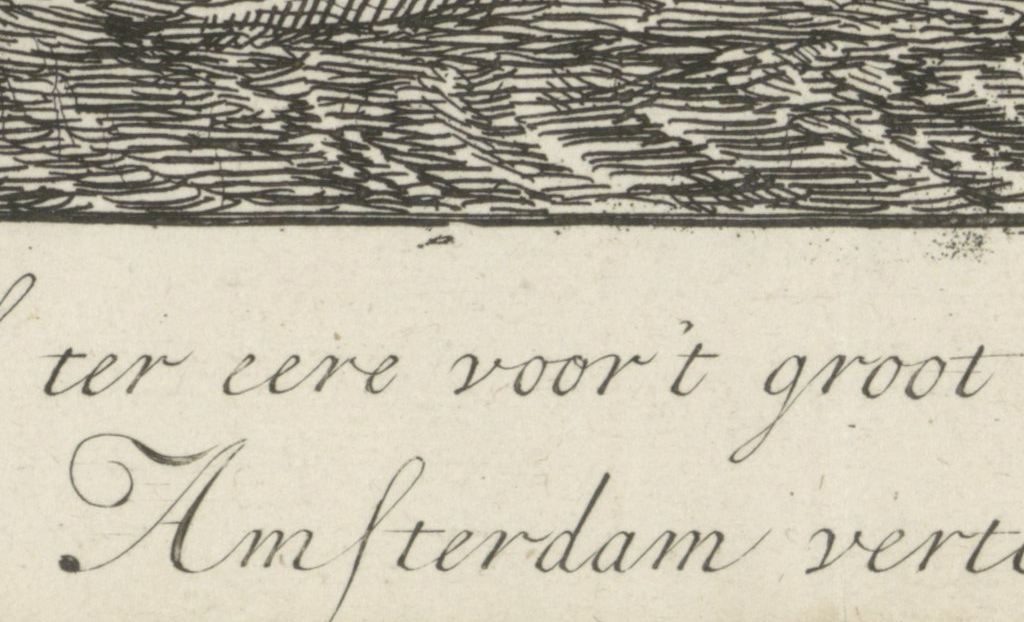 ter eere voor't groot
Amſterdam